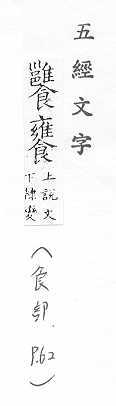 五經文字
饔
上說文
下隸變
(食部 P.62)